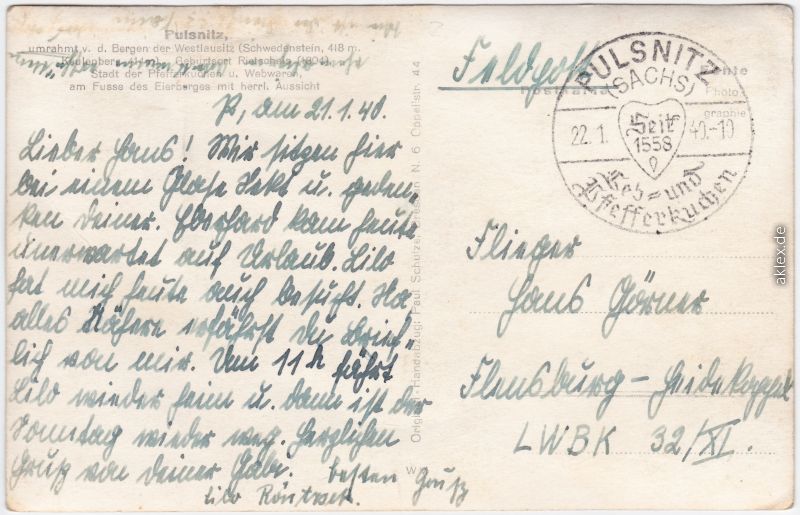 Pulsnitz,
umrahmt v. d. Bergen der Westlausitz (Schwedenstein, 418 m.
Geburtsort Rietschels (1804)
Stadt der Pfefferkuchen u. Webwaren,
am Fusse des Eierberges mit herrl. Aussicht
P., am 21.1.40.
Lieber Hans! Wir sitzen hier
bei einem Glase Sekt u. geden-
ken Deiner. Eberhard kam heute
unerwartet auf Urlaub. Lilo
hat mich heute auch besucht. Na
alles Nähere erfährst Du brief-
lich von mir. Um 11 h fährt
Lilo wieder heim u. dann ist der
Sonntag wieder weg. Herzlichen
Gruß von Deiner Gabi.
besten Gruß
Lilo
Original-Handabzug: Paul Schulze, Dresden N. 6 Oppellstr. 44
Feldpost
Echte
Photo-
graphie
PULSNITZ
(SACHS)
22.1. 40.-10
Seit
1558
Web- und
Pfefferkuchen
Flieger
Hans Görner
Flensburg – Heidekoppel
LWBK 32/XI.
aklex.de